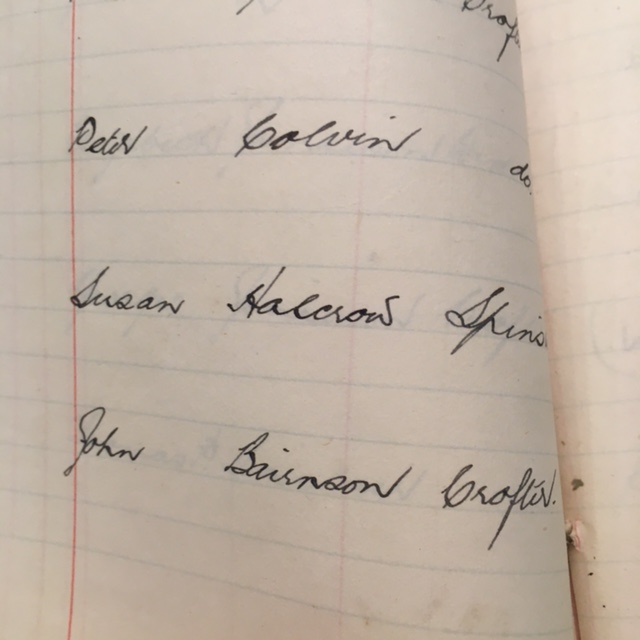 Prop
Peter Colvin do.
Susan Halcrow Spins
John Bairnson Crofter.